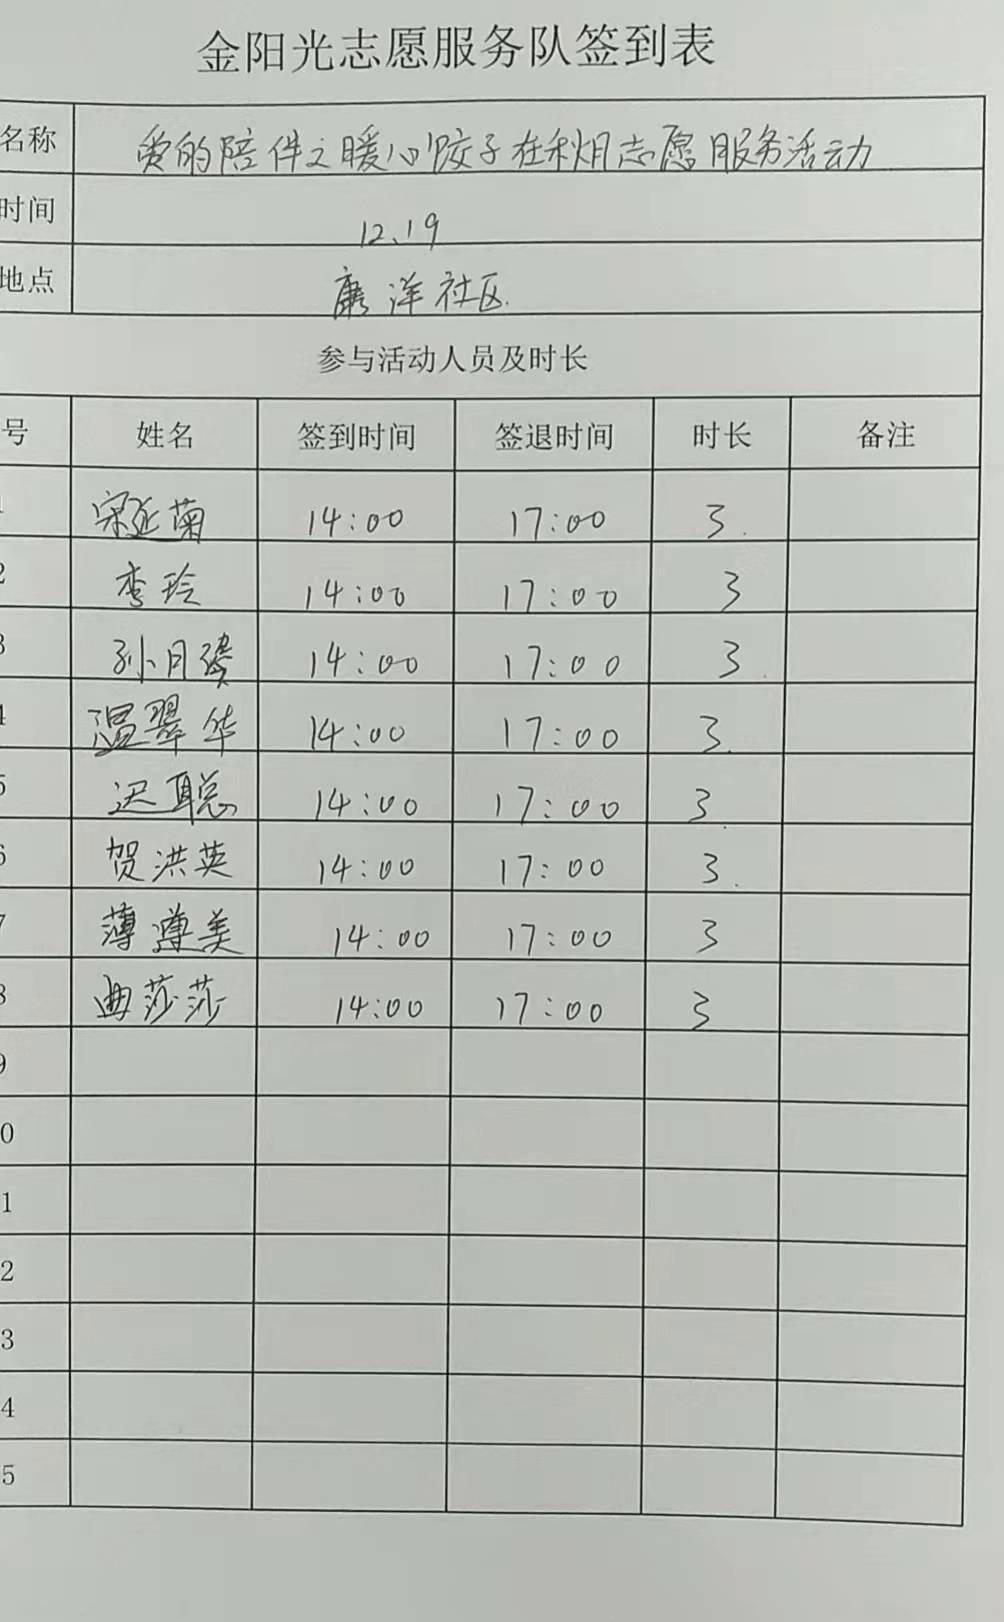 金阳光志愿服务队签到表
名称 爱的陪伴之暖心饺子在秋阳志愿服务活动
时间 12.19
地点 康洋社区.
参与活动人员及时长
号 姓名 签到时间 签退时间 时长 备注
1 宋延菊 14:00 17:00 3.
2 李玲 14:00 17:00 3
3 孙月 14:00 17:00 3
4 温翠华 14:00 17:00 3.
5 迟聪 14:00 17:00 3.
6 贺洪英 14:00 17:00 3.
7 薄遵美 14:00 17:00 3
8 曲莎莎 14:00 17:00 3
9
0
1
2
3
4
5